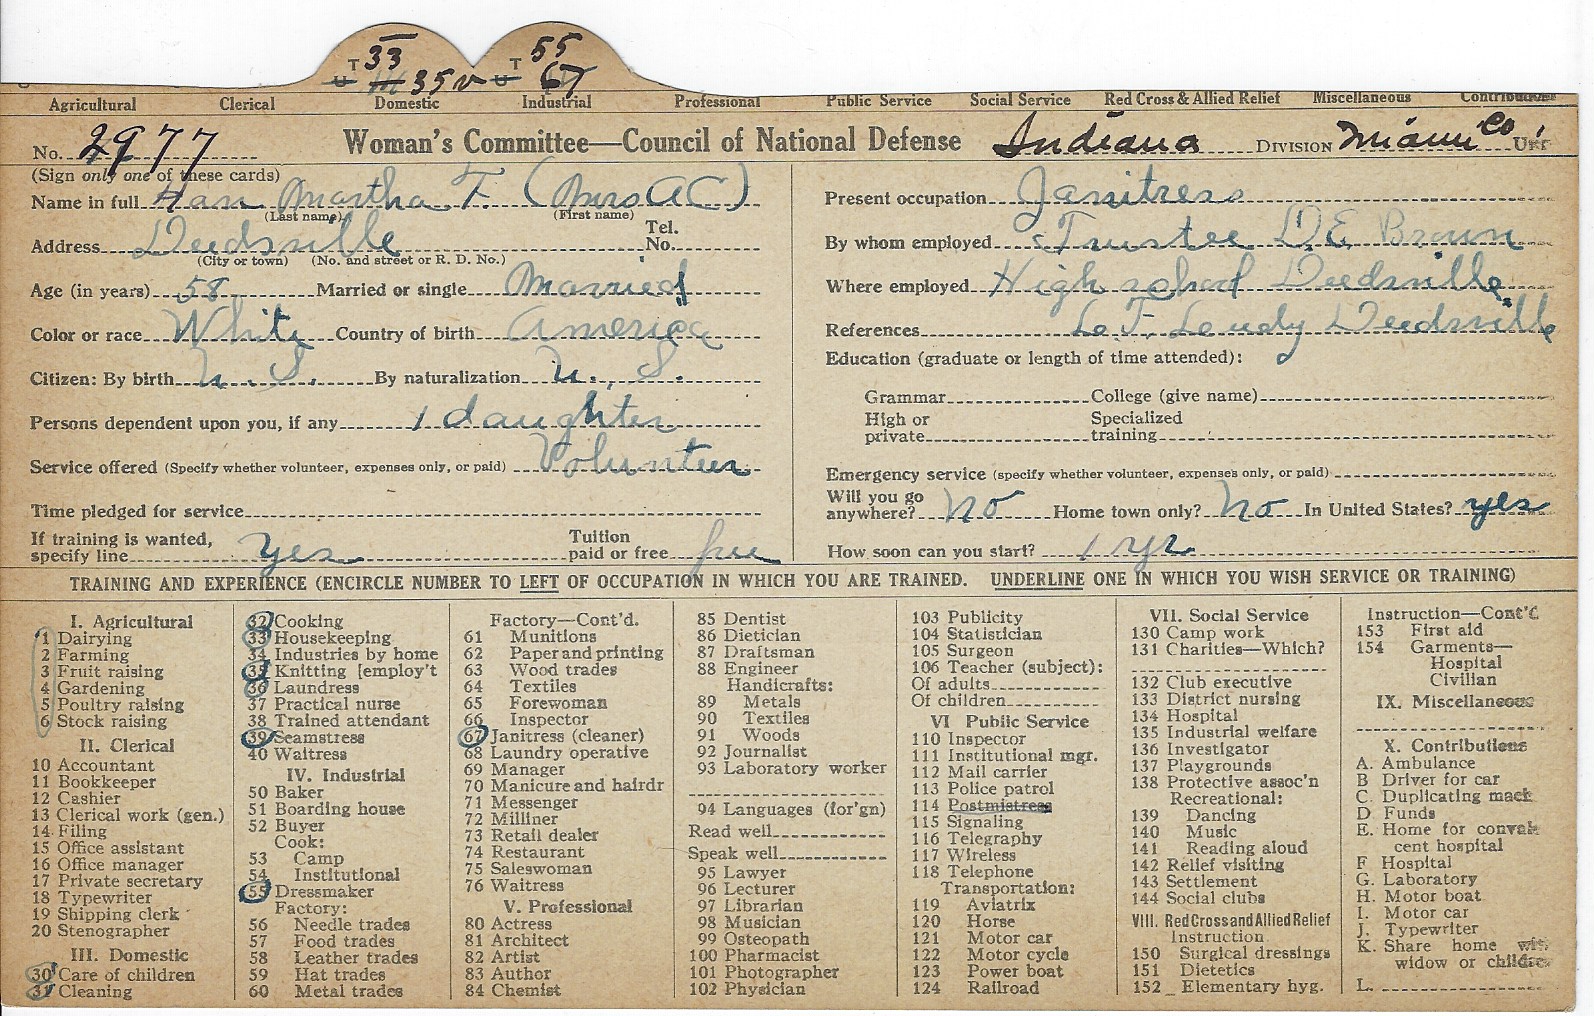 T 33 T 55
U 35 v U 67
Agricultural Clerical Domestic Industrial Professional Public Service Social Service Red Cross & Allied Relief Miscellaneous Contributions
No. 2977 Woman's Committee—Council of National Defense Indiana DIVISION Miami Co. UNIT
(Sign only one of these cards)
Name in full Martha F. (Mrs A C)
(Last name) (First name)
Address Deedsville Tel. No.
(City or town) (No. and street or R. D. No.)
Age (in years) 58 Married or single Married
Color or race White Country of birth America
Citizen: By birth U. S. By naturalization U. S.
Persons dependent upon you, if any 1 daughter
Service offered (Specify whether volunteer, expenses only, or paid) Volunteer
Time pledged for service
If training is wanted, specify line yes Tuition paid or free free
Present occupation Janitress
By whom employed Trustee D.E. Brown
Where employed High school Deedsville
References Deedsville
Education (graduate or length of time attended):
Grammar College (give name)
High or private Specialized training
Emergency service (specify whether volunteer, expenses only, or paid)
Will you go anywhere? No Home town only? No In United States? yes
How soon can you start? 1 yr
TRAINING AND EXPERIENCE (ENCIRCLE NUMBER TO LEFT OF OCCUPATION IN WHICH YOU ARE TRAINED. UNDERLINE ONE IN WHICH YOU WISH SERVICE OR TRAINING)
I. Agricultural
1 Dairying
2 Farming
3 Fruit raising
4 Gardening
5 Poultry raising
6 Stock raising
II. Clerical
10 Accountant
11 Bookkeeper
12 Cashier
13 Clerical work (gen.)
14 Filing
15 Office assistant
16 Office manager
17 Private secretary
18 Typewriter
19 Shipping clerk
20 Stenographer
III. Domestic
30 Care of children
31 Cleaning
32 Cooking
33 Housekeeping
34 Industries by home
35 Knitting [employ't
36 Laundress
37 Practical nurse
38 Trained attendant
39 Seamstress
40 Waitress
IV. Industrial
50 Baker
51 Boarding house
52 Buyer
Cook:
53 Camp
54 Institutional
55 Dressmaker
Factory:
56 Needle trades
57 Food trades
58 Leather trades
59 Hat trades
60 Metal trades
Factory—Cont'd.
61 Munitions
62 Paper and printing
63 Wood trades
64 Textiles
65 Forewoman
66 Inspector
67 Janitress (cleaner)
68 Laundry operative
69 Manager
70 Manicure and hairdr
71 Messenger
72 Milliner
73 Retail dealer
74 Restaurant
75 Saleswoman
76 Waitress
V. Professional
80 Actress
81 Architect
82 Artist
83 Author
84 Chemist
85 Dentist
86 Dietician
87 Draftsman
88 Engineer
Handicrafts:
89 Metals
90 Textiles
91 Woods
92 Journalist
93 Laboratory worker
94 Languages (for'gn)
Read well
Speak well
95 Lawyer
96 Lecturer
97 Librarian
98 Musician
99 Osteopath
100 Pharmacist
101 Photographer
102 Physician
103 Publicity
104 Statistician
105 Surgeon
106 Teacher (subject):
Of adults
Of children
VI Public Service
110 Inspector
111 Institutional mgr.
112 Mail carrier
113 Police patrol
114 Postmistress
115 Signaling
116 Telegraphy
117 Wireless
118 Telephone
Transportation:
119 Aviatrix
120 Horse
121 Motor car
122 Motor cycle
123 Power boat
124 Railroad
VII. Social Service
130 Camp work
131 Charities—Which?
132 Club executive
133 District nursing
134 Hospital
135 Industrial welfare
136 Investigator
137 Playgrounds
138 Protective assoc'n
Recreational:
139 Dancing
140 Music
141 Reading aloud
142 Relief visiting
143 Settlement
144 Social clubs
VIII. Red Cross and Allied Relief
Instruction
150 Surgical dressings
151 Dietetics
152 Elementary hyg.
Instruction—Cont'd
153 First aid
154 Garments—
Hospital
Civilian
IX. Miscellaneous
X. Contributions
A. Ambulance
B Driver for car
C. Duplicating mach
D Funds
E. Home for convalescent hospital
F Hospital
G. Laboratory
H. Motor boat
I. Motor car
J. Typewriter
K. Share home with widow or children
L.